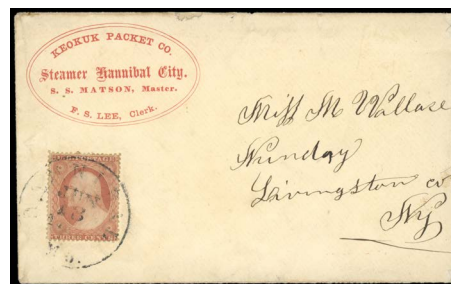 KEOKUK PACKET CO.
Steamer Hannibal City.
S. S. MATSON, Master.
F. S. LEE, Clerk.
Miss M Wallase
Nunday
Livingston co
Ny
JUN
13